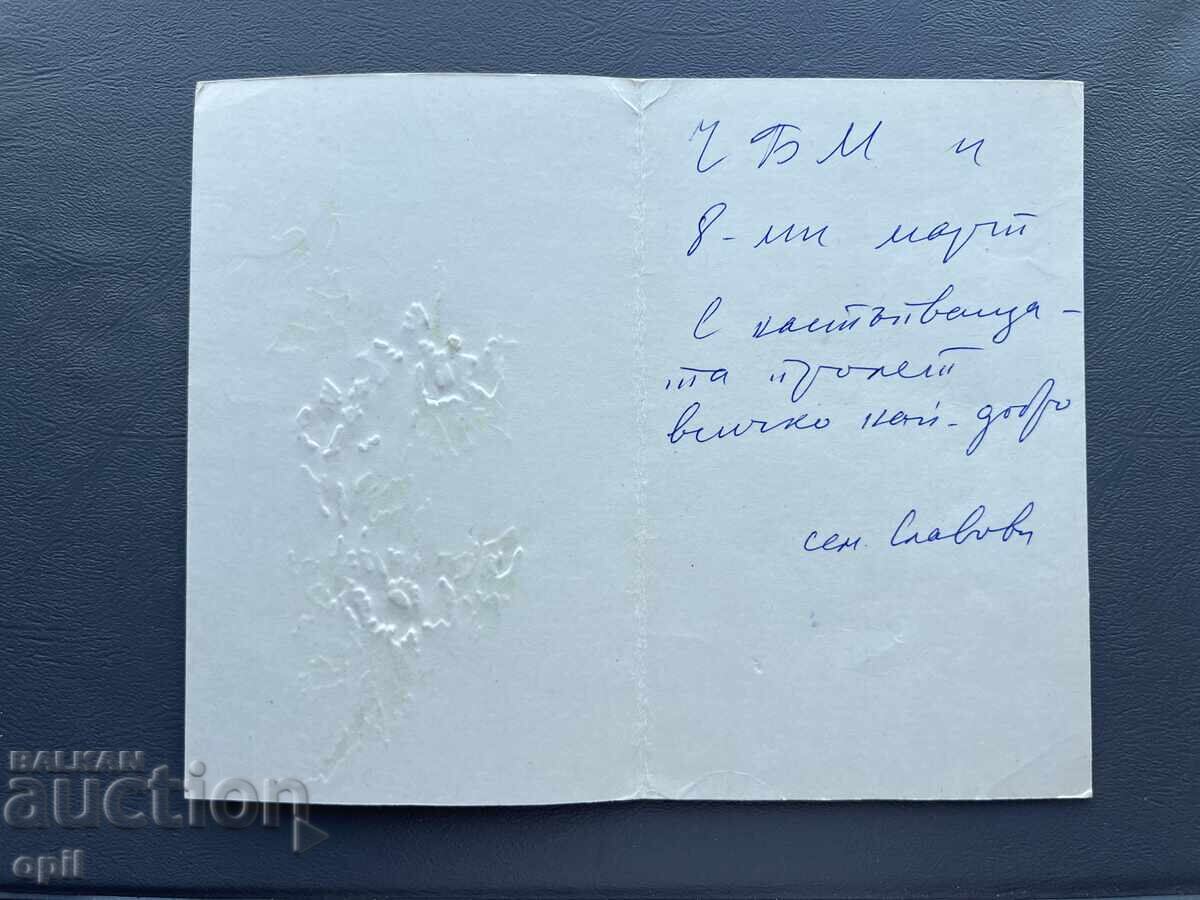 ЧБМ и
8-ми март
С настъпваща-
та пролет
всичко най-добро
сем. Славови
BALKAN
auction
opil